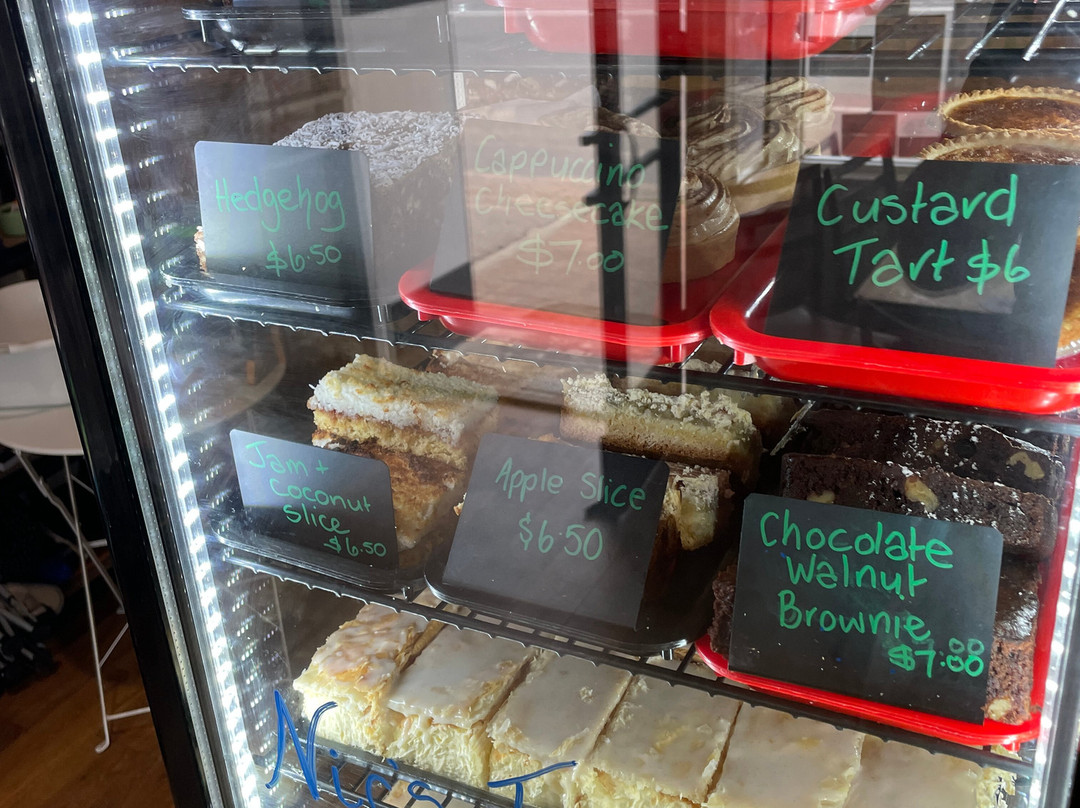 Hedgehog
$6.50
Cappuccino
Cheesecake
$7.00
Custard
Tart $6
Jam +
Coconut
Slice
$6.50
Apple Slice
$6.50
Chocolate
Walnut
Brownie
$7.00
Nic's